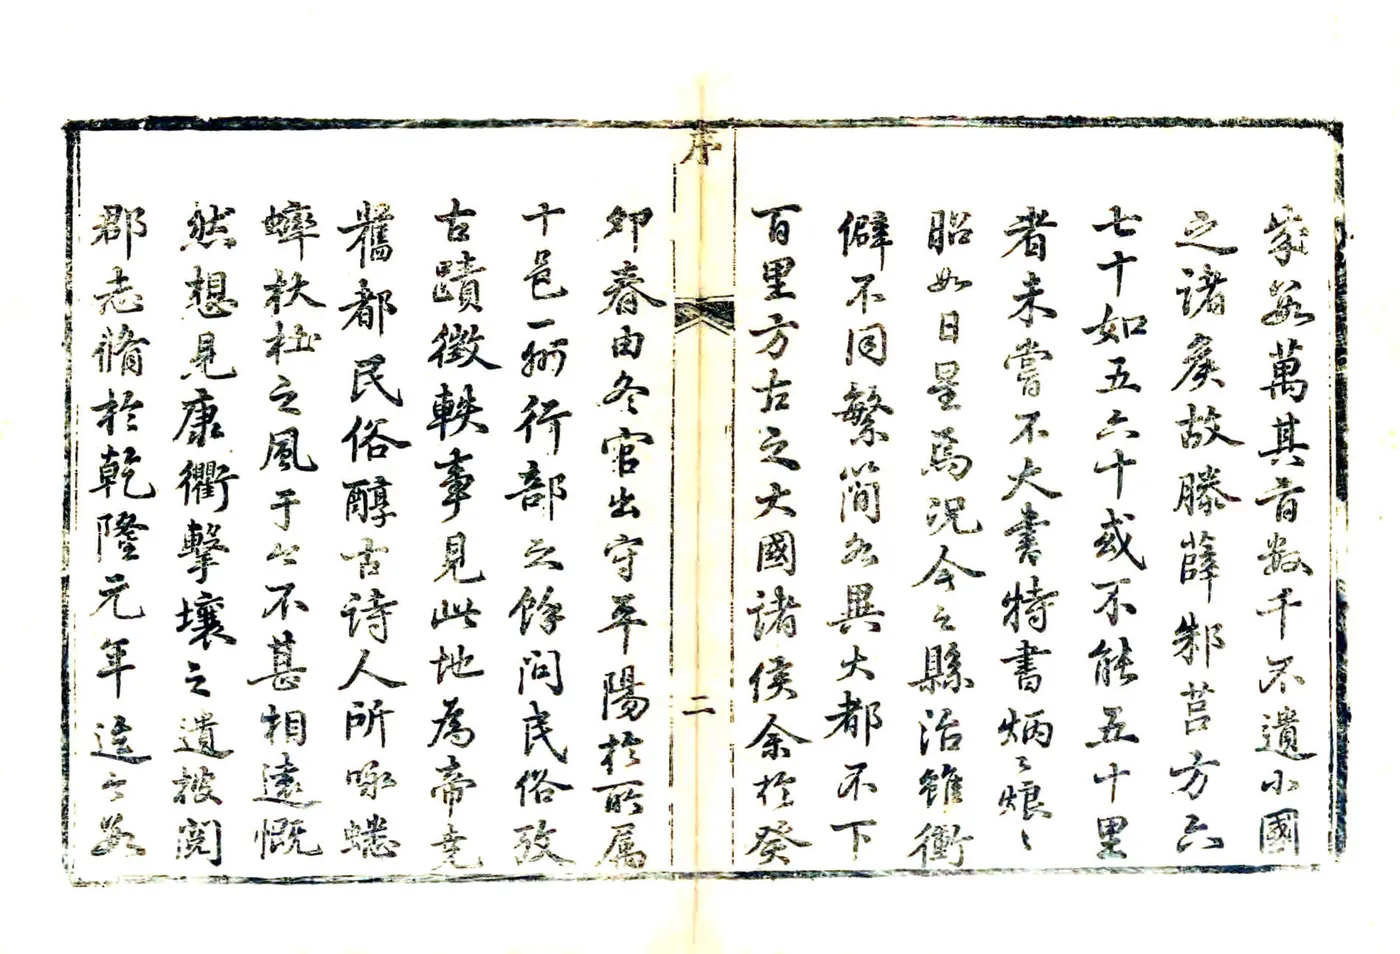 數萬其旨數千不遺小國
之諸矦故滕薛邾莒方六
七十如五六十或不能五十里
者未嘗不大書特書炳〻烺〻
昭如日星焉況今之縣治雖衝
僻不同繁簡各異大都不下
百里方古之大國諸侯余於癸
序
二
卯春由冬官出守平陽於所属
十邑一州行部之餘問民俗攷
古蹟徵軼事見此地為帝堯
舊都民俗醇古詩人所咏蟋
蟀杕杜之風于今不甚相遠慨
然想見康衢擊壤之遺披閱
郡志脩於乾隆元年迄今數